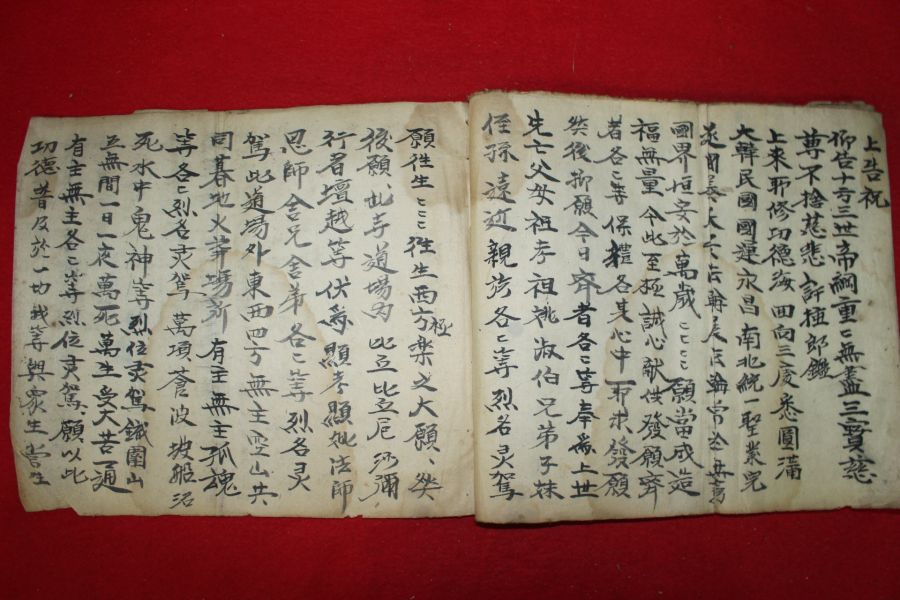 上告祝
仰告十方三世帝綱重〻無盡三宝慈
尊不捨慈悲許極郎鑑
上來所修功德海 回向三處悉圓滿
大韓民國國運永昌 南北統一聖業完
國界恒安於萬歲〻〻〻願當成造
福無量 今此至極誠心献供發願齊
者各〻等保體各其心中所求發願
然後抑願今日齊者各〻等奉為上世
先亡父母祖考祖妣淑伯兄弟子妹
侄孫遠近親族各〻等烈名灵駕
願往生〻〻往生西方極楽之大願、然
後願、此寺道場内 比丘比丘尼沙彌
行者壇越等伏為 顯考顯妣法師
恩師舎兄舎弟各〻等烈名灵
駕此道場外東西四方無主空山共
司暮地火葬場所 有主無主孤魂
等各〻烈名灵駕 萬項蒼波 坡船沼
死水中鬼神等烈位灵駕鐵圍山
五無間一日一夜萬死萬生受大苦通
有主無主各〻等烈位灵駕、願以此
功德普及於一切我等與衆生當生